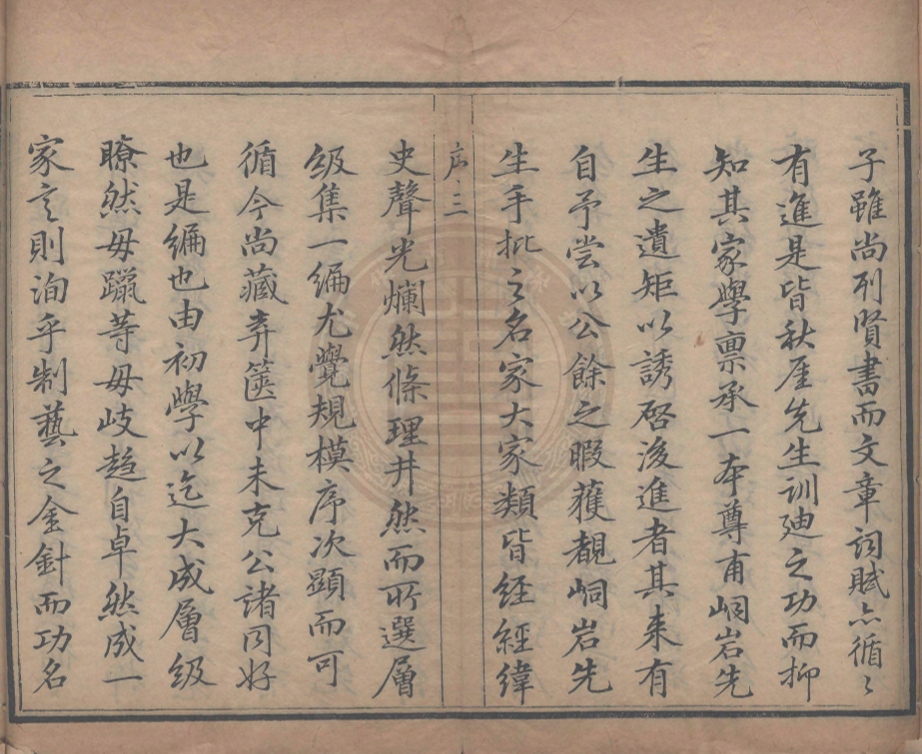 子雖尚列賢書而文章詞賦亦循〻
有進是皆秋厓先生訓廸之功而抑
知其家學稟承一本尊甫峒岩先
生之遺矩以誘啓後進者其来有
自予嘗以公餘之暇獲覩峒岩先
生手批之名家大家類皆經經緯
序 三
史聲光爛然條理井然而所選層
级集一编尤覺規模序次顯而可
循今尚藏弆篋中未克公諸同好
也是编也由初學以迄大成層级
瞭然毋躐等毋歧趋自卓然成一
家言則洵乎制藝之金針而功名